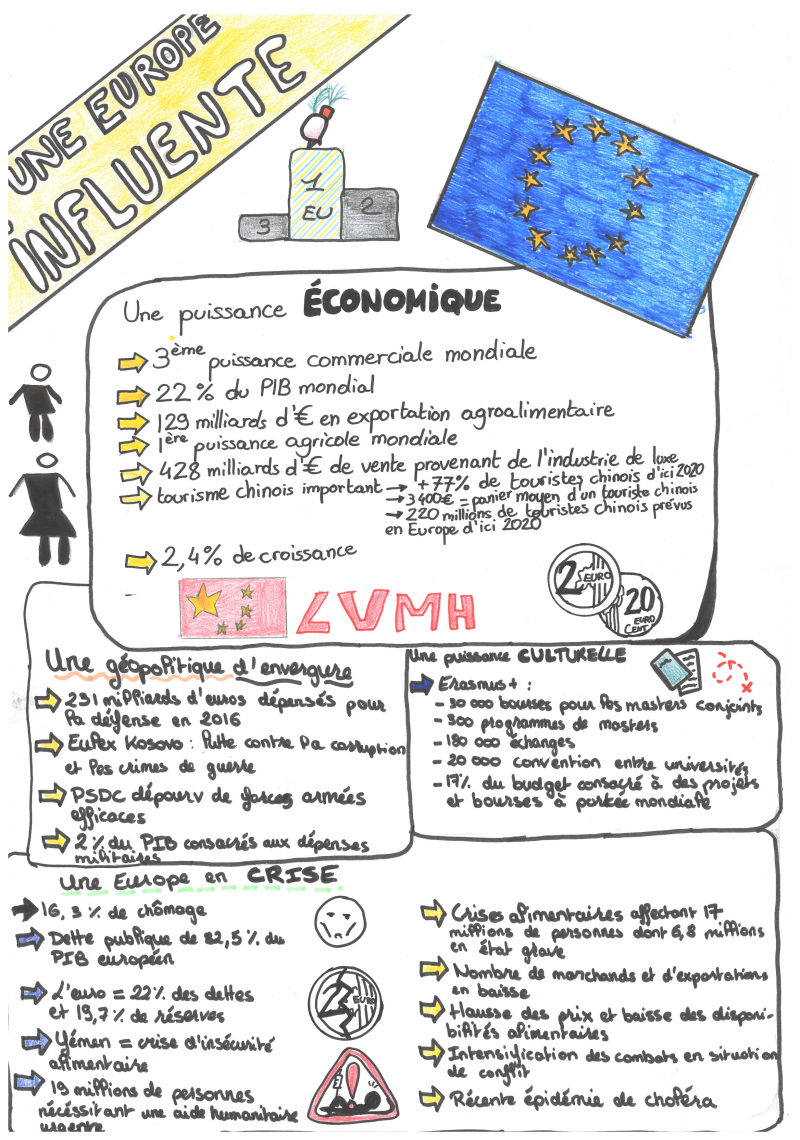 UNE EUROPE
INFLUENTE
1
EU
2
3
Une puissance ÉCONOMIQUE
3ème puissance commerciale mondiale
22 % du PIB mondial
129 milliards d'€ en exportation agroalimentaire
1ère puissance agricole mondiale
428 milliards d'€ de vente provenant de l'industrie de luxe
tourisme chinois important → +77% de touristes chinois d'ici 2020
→ 3 400€ = panier moyen d'un touriste chinois
→ 220 millions de touristes chinois prévus
en Europe d'ici 2020
2,4% de croissance
LVMH
2 EURO
20
EURO
CENT
Une géopolitique d'envergure
231 milliards d'euros dépensés pour
la défense en 2016
Eulex Kosovo : lutte contre la corruption
et les crimes de guerre
PSDC dépourv de forces armées
efficaces
2 % du PIB consacrés aux dépenses
militaires
Une puissance CULTURELLE
Erasmus+ :
- 30 000 bourses pour les masters conjoints
- 300 programmes de masters
- 180 000 échanges
- 20 000 convention entre universités
- 17% du budget consacré à des projets
et bourses à portée mondiale
Une Europe en CRISE
16,3 % de chômage
Dette publique de 82,5 % du
PIB européen
L'euro = 22% des dettes
et 19,7 % de réserves
Yémen = crise d'insécurité
alimentaire
19 millions de personnes
nécéssitant une aide humanitaire
urgente
2 EURO
Crises alimentaires affectant 17
millions de personnes dont 6,8 millions
en état grave
Nombre de marchands et d'exportations
en baisse
Hausse des prix et baisse des disponi-
bilités alimentaires
Intensification des combats en situation
de conflit
Récente épidémie de choléra